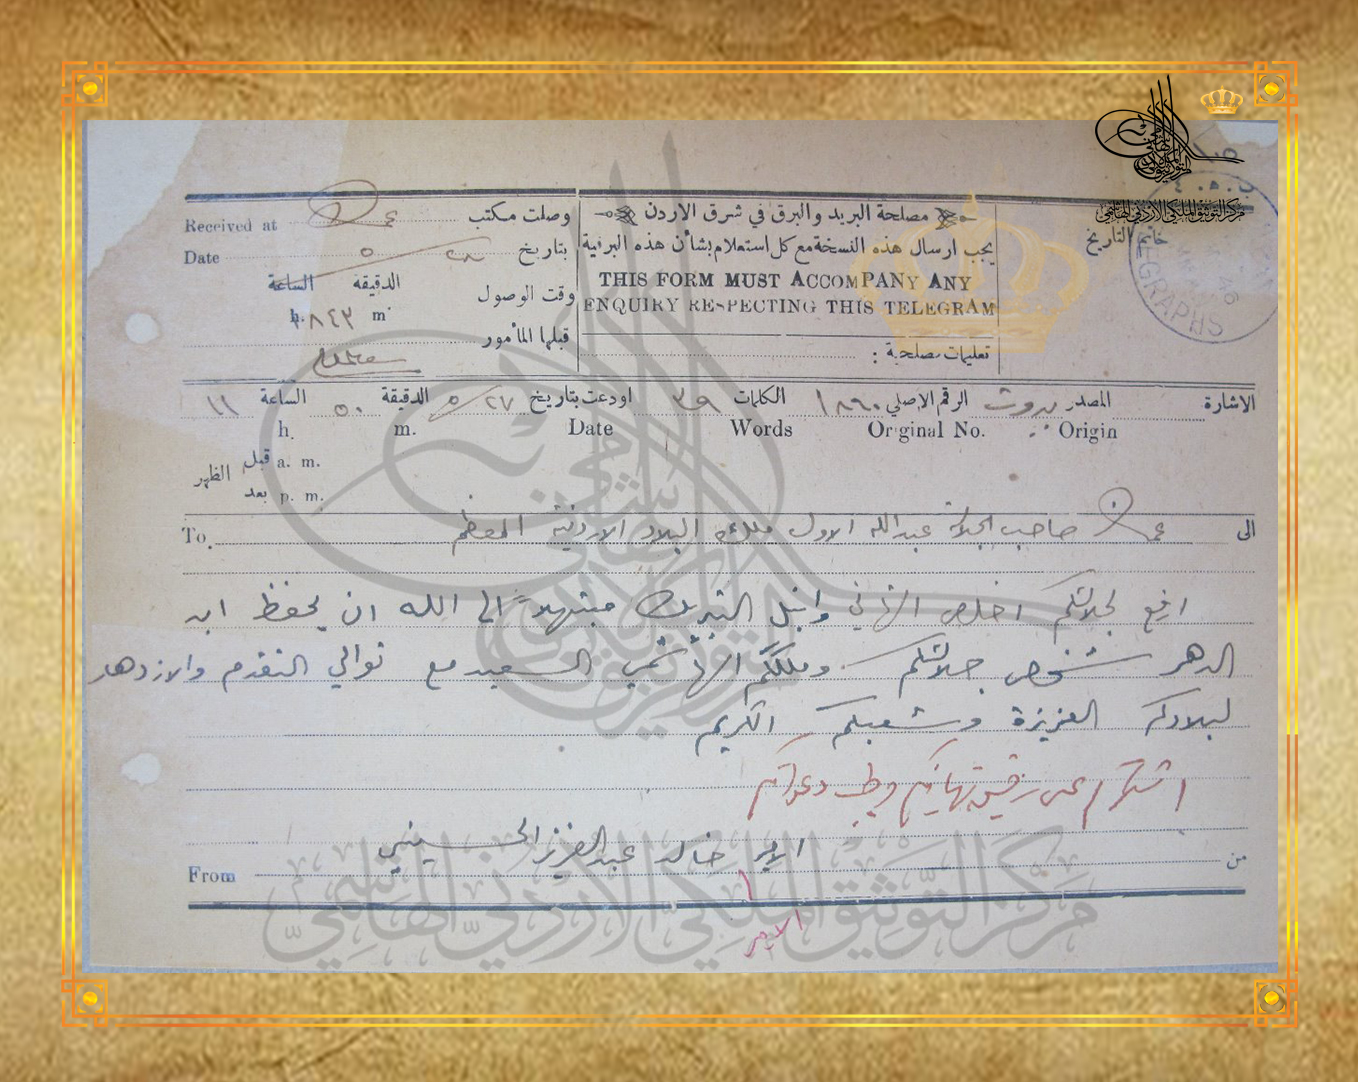 مركز التوثيق الملكي الأردني الهاشمي
ب. ه. ٤
خاتم التاريخ
TELEGRAPHS
46
مصلحة البريد والبرق في شرق الاردن
يجب ارسال هذه النسخة مع كل استعلام بشأن هذه البرقية
THIS FORM MUST ACCOMPANY ANY
ENQUIRY RESPECTING THIS TELEGRAM
تعليمات مصلحية :
Received at عمان وصلت مكتب
Date ٥ بتاريخ
الساعة الدقيقة وقت الوصول
h. ٨٤٣ m
قبلها المأمور
الاشارة المصدر بيروت الرقم الاصلي ١٨٦٠ الكلمات ٣٩ اودعت بتاريخ ٢٧/٥ الدقيقة ٥٠ الساعة ١١
Origin Original No. Words Date m. h.
قبل a. m.
الظهر
بعد p. m.
الى عمان صاحب الجلالة عبدالله الاول ملك البلاد الاردنية المعظم To.
ارفع لجلالتكم اخلص التهاني وانبل التبريك مبتهلا الى الله ان يحفظ ابد
الدهر شخص جلالتكم وملككم الهاشمي السعيد مع توالي التقدم والازدهار
لبلادكم العزيزة وشعبكم الكريم
اشكركم على رقيق تهانيكم وطيب دعواتكم
من الامير خالد عبدالعزيز الحسيني From
الامير
مركز التوثيق الملكي الأردني الهاشمي